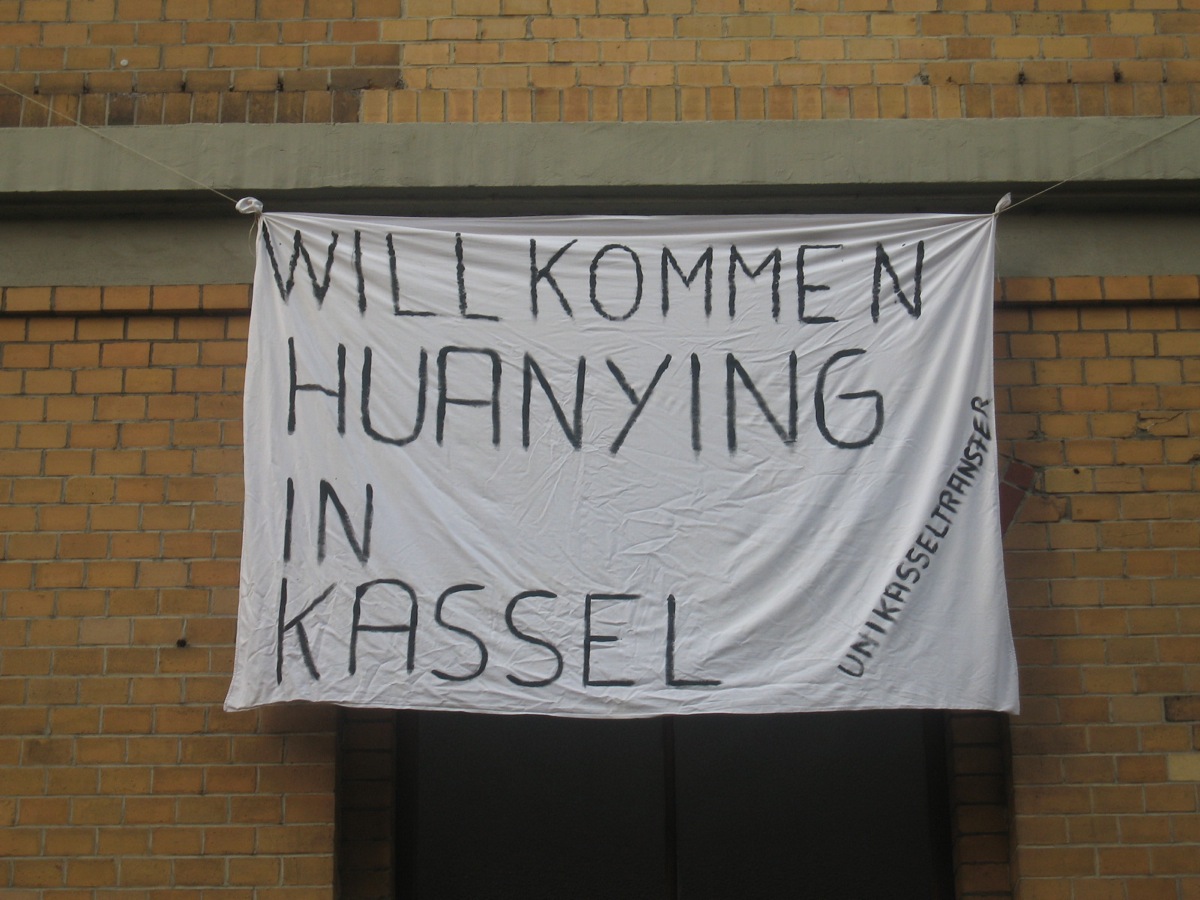 WILLKOMMEN
HUANYING
IN
KASSEL
UNIKASSELTRANSFER